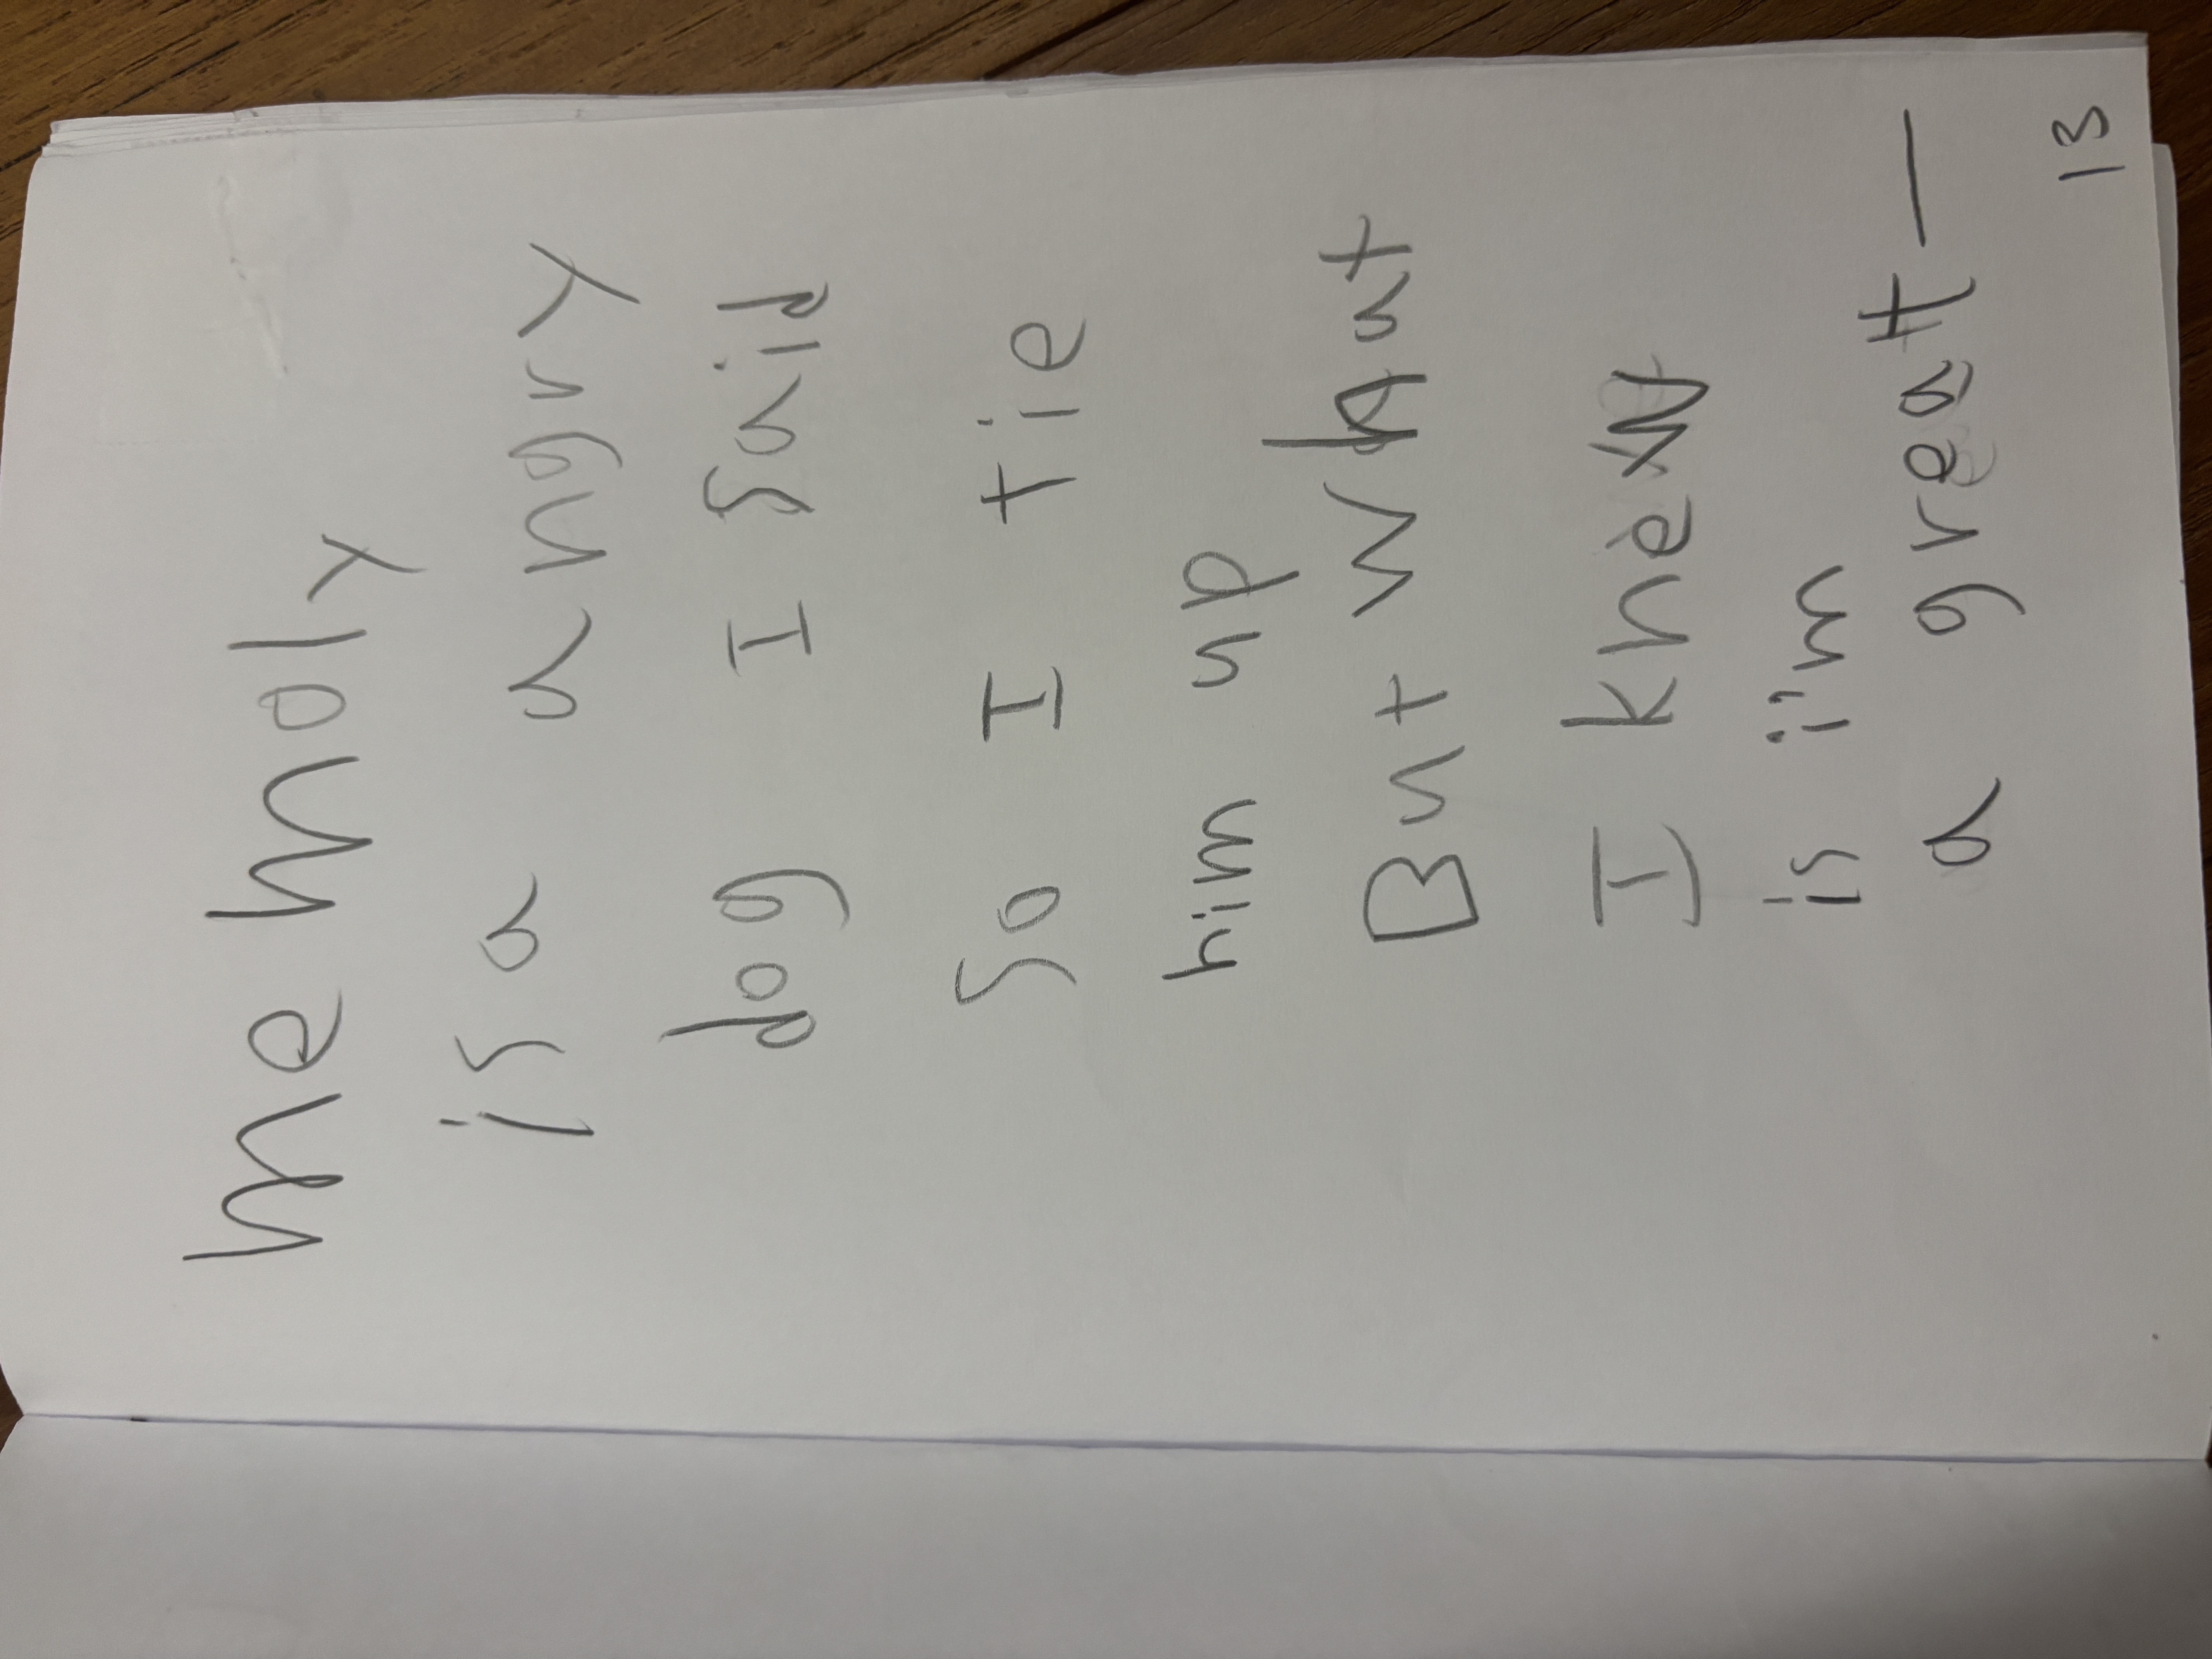 me moly
is a angry
dog I said
So I tie
him up
But what
I knew
is i'm
a great—
13